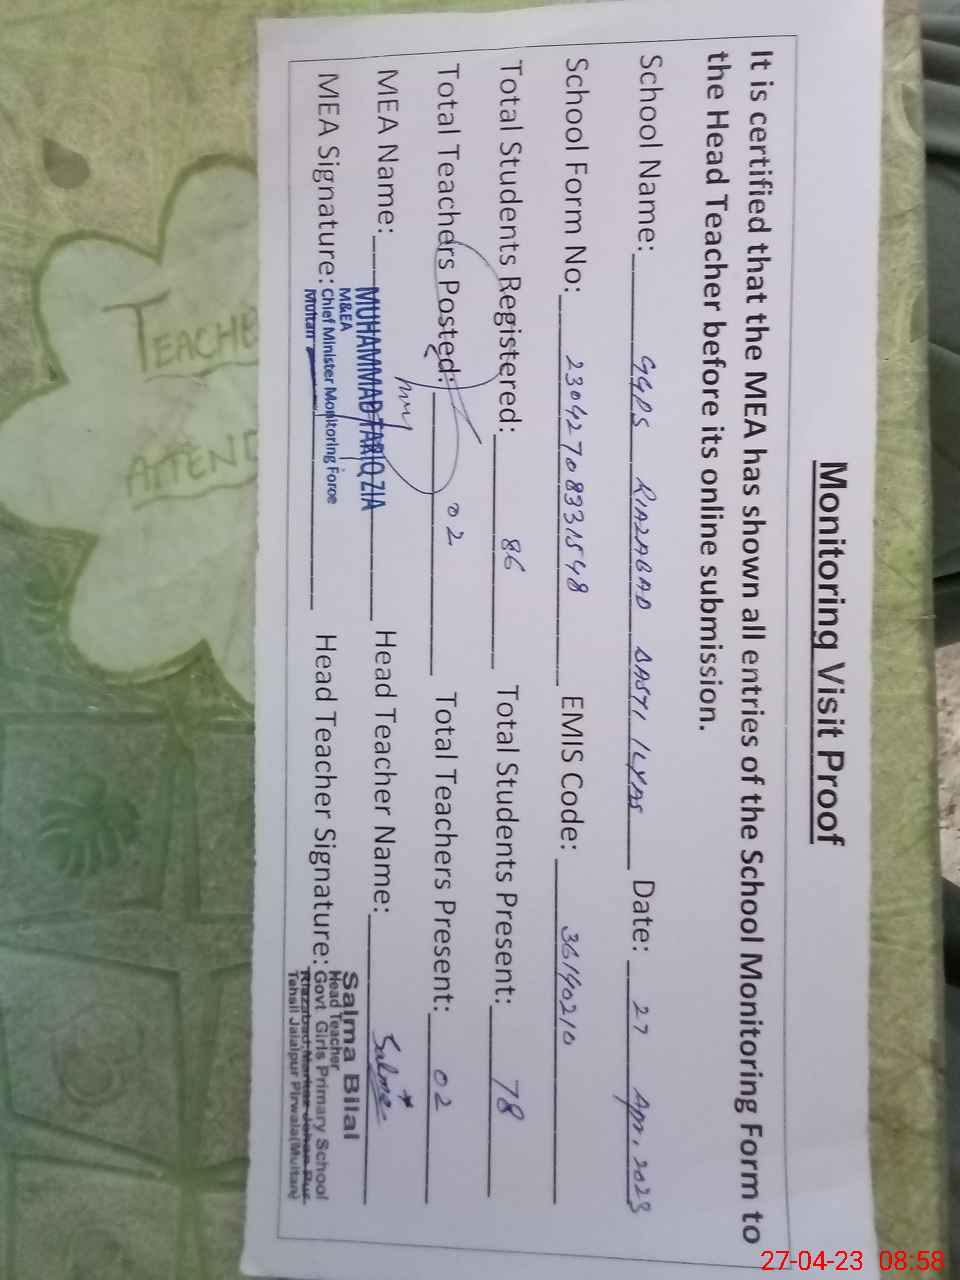 Monitoring Visit Proof
It is certified that the MEA has shown all entries of the School Monitoring Form to
the Head Teacher before its online submission.
School Name: GGPS RIAZABAD BASTI ILYAS Date: 27 Apr, 2023
School Form No: 23042708331548 EMIS Code: 36140210
Total Students Registered: 86 Total Students Present: 78
Total Teachers Posted: 02 Total Teachers Present: 02
MEA Name: MUHAMMAD TARIQ ZIA Head Teacher Name: Salma
M&EA
MEA Signature: Chief Minister Monitoring Force
Multan
Head Teacher Signature: Salma Bilal
Head Teacher
Govt Girls Primary School
Riazabad Markaz Jahan Pur
Tehsil Jalalpur Pirwala(Multan)
TEACHE
ATTEND
27-04-23 08:58